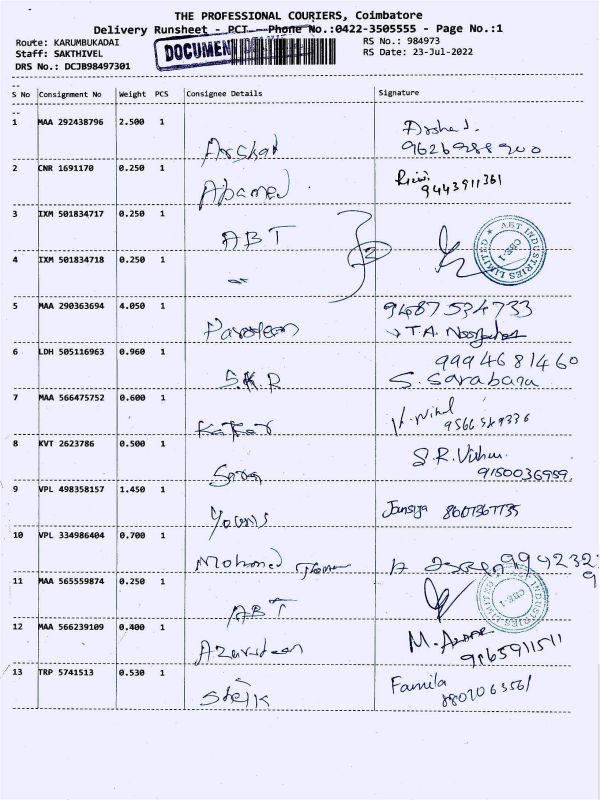 THE PROFESSIONAL COURIERS, Coimbatore
Delivery Runsheet - PCT - Phone No.:0422-3505555 - Page No.:1
Route: KARUMBUKADAI
RS No.: 984973
Staff: SAKTHIVEL
DOCUMENT
RS Date: 23-Jul-2022
DRS No.: DCJB98497301
S No Consignment No Weight PCS Consignee Details Signature
1 MAA 292438796 2.500 1 Arshat Arshad.
2 CNR 1691170 0.250 1 Ahamed 9443911361
3 IXM 501834717 0.250 1 ABT
ABT INDUSTRIES LIMITED CBE-1
4 IXM 501834718 0.250 1 2
5 MAA 290363694 4.050 1 Parveen 9487534733
T.A.
6 LDH 505116963 0.960 1 S.K.R 9994681460
S. Sarabanu
7 MAA 566475752 0.600 1
8 KVT 2623786 0.500 1 S.R.
9150036959.
9 VPL 498358157 1.450 1
10 VPL 334986404 0.700 1 Mohamed
11 MAA 565559874 0.250 1 ABT
ABT INDUSTRIES LIMITED CBE-1
12 MAA 566239109 0.400 1 M.
9165911511
13 TRP 5741513 0.530 1 Famila